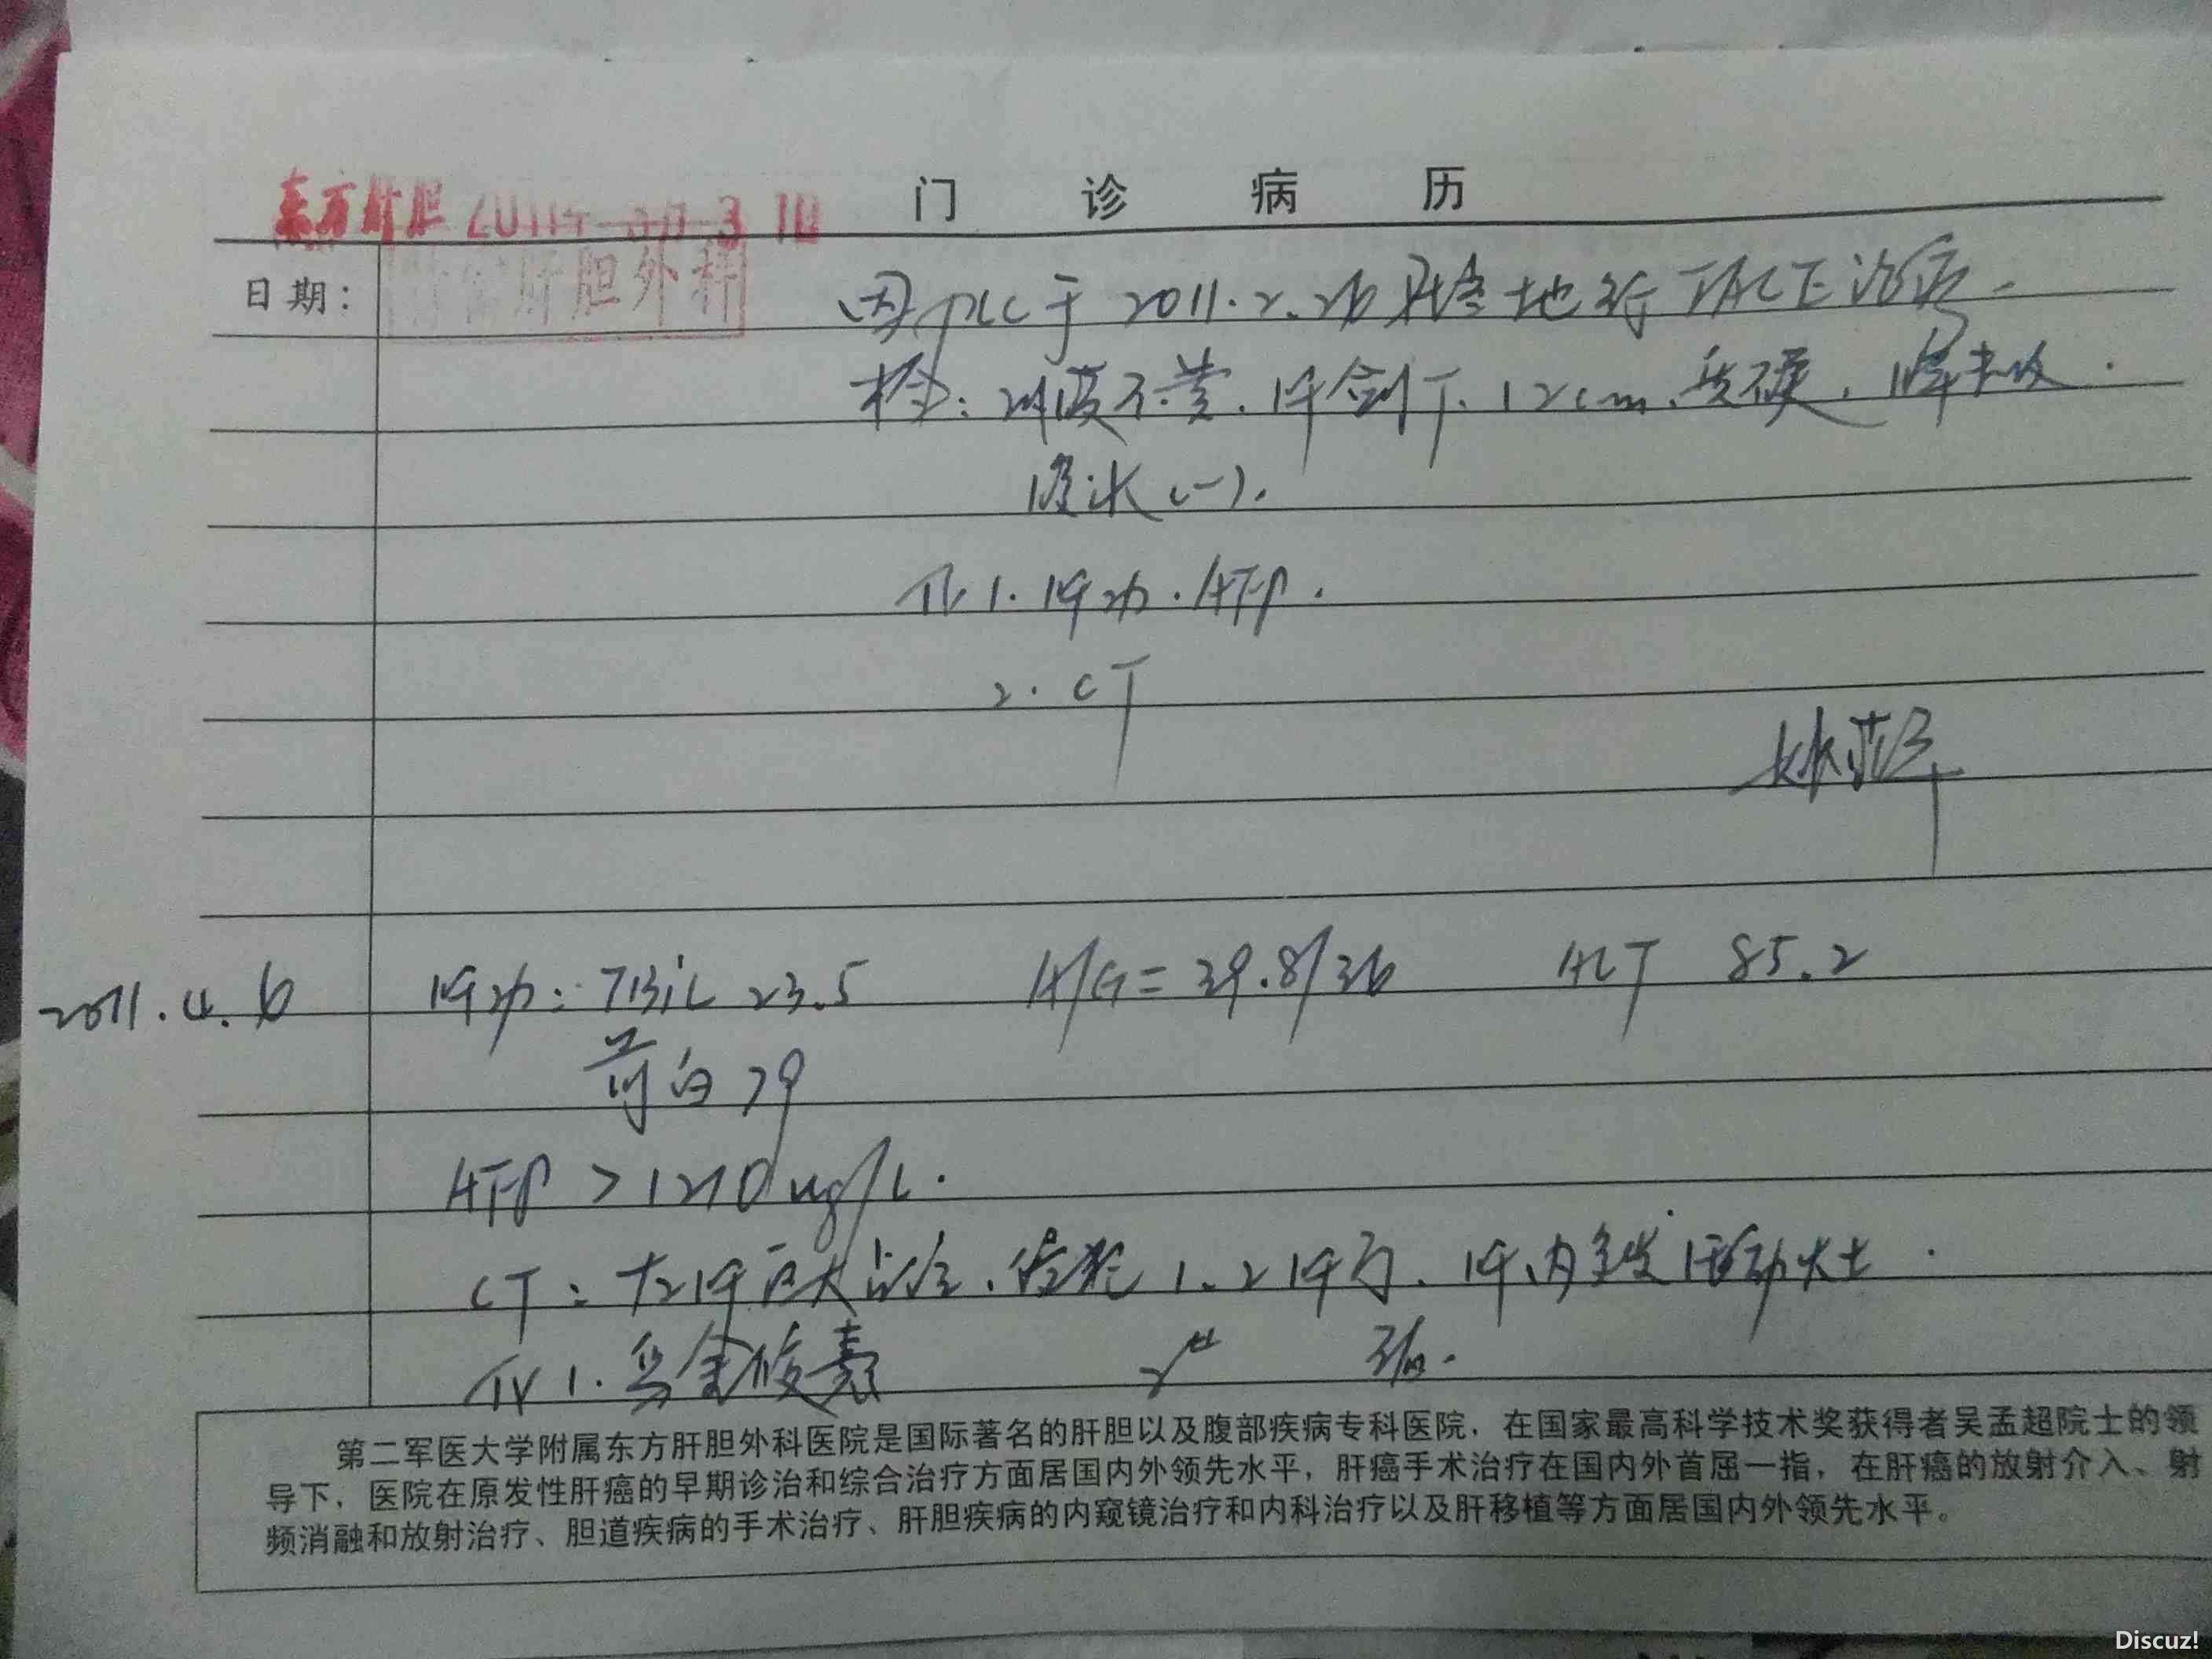 门诊病历
东方肝胆 2011年 3 10
日期：
肝胆外科
因PLC于2011.2.26在当地行TACE治疗.
检：巩膜不黄.肝剑下12cm.质硬.脾未及.
腹水(-).
R 1.肝功.AFP.
2.CT
2011.4.6 肝功：TBiL 23.5 A/G=39.8/36 ALT 85.2
前白 79
AFP >1210ug/L.
CT：左肝巨大占位.肝内多发活动灶.
R 1.乌金胶囊 2
第二军医大学附属东方肝胆外科医院是国际著名的肝胆以及腹部疾病专科医院，在国家最高科学技术奖获得者吴孟超院士的领
导下，医院在原发性肝癌的早期诊治和综合治疗方面居国内外领先水平，肝癌手术治疗在国内外首屈一指，在肝癌的放射介入、射
频消融和放射治疗、胆道疾病的手术治疗、肝胆疾病的内窥镜治疗和内科治疗以及肝移植等方面居国内外领先水平。
Discuz!